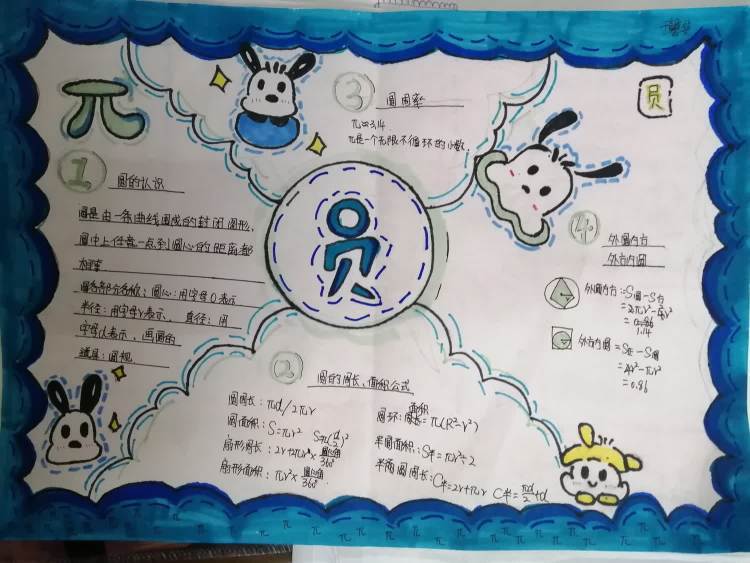 圆
1 圆的认识
圆是由一条曲线围成的封闭图形,
圆中上任意一点到圆心的距离都
相等
圆各部分名称:圆心:用字母O表示
半径:用字母r表示, 直径:用
字母d表示, 画圆的
工具:圆规
3 圆周率
π≈3.14
π是一个无限不循环的小数.
员
4 外圆内方
外方内圆
外圆内方:S圆-S方
外方内圆=S正-S圆
=4r²-πr²
=0.86
2 圆的周长、面积公式
圆周长:πd/2πr
圆面积:S=πr² S=π(d/2)²
扇形周长:2r+2πr×圆心角/360°
扇形面积:πr²×圆心角/360°
圆环:面积=π(R²-r²)
半圆面积:S半=πr²÷2
半圆周长:C半=2r+πr C半=πd/2+d
π π π π π π π π π π π